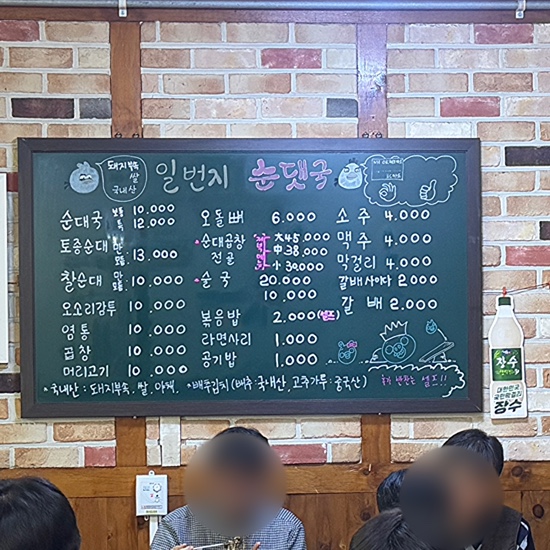 돼지부속
쌀
국내산
일번지 순댓국
순대국 보통 10.000
특 12.000
토종순대
모듬 13.000
찰순대
모듬 10.000
오소리감투 10.000
염통 10.000
곱창 10.000
머리고기 10.000
오돌뼈 6.000
순대곱창
전골
大 45.000
中 38.000
小 30.000
술국 20.000
10.000
볶음밥 2.000 (셀프)
라면사리 1.000
공기밥 1.000
소주 4.000
맥주 4.000
막걸리 4.000
갈배사이다 2.000
갈배 2.000
*국내산 : 돼지부속, 쌀, 야채,
*배추김치 (배추:국내산, 고추가루:중국산)
추가 반찬은 셀프!!
장수
대한민국
국민막걸리
장수